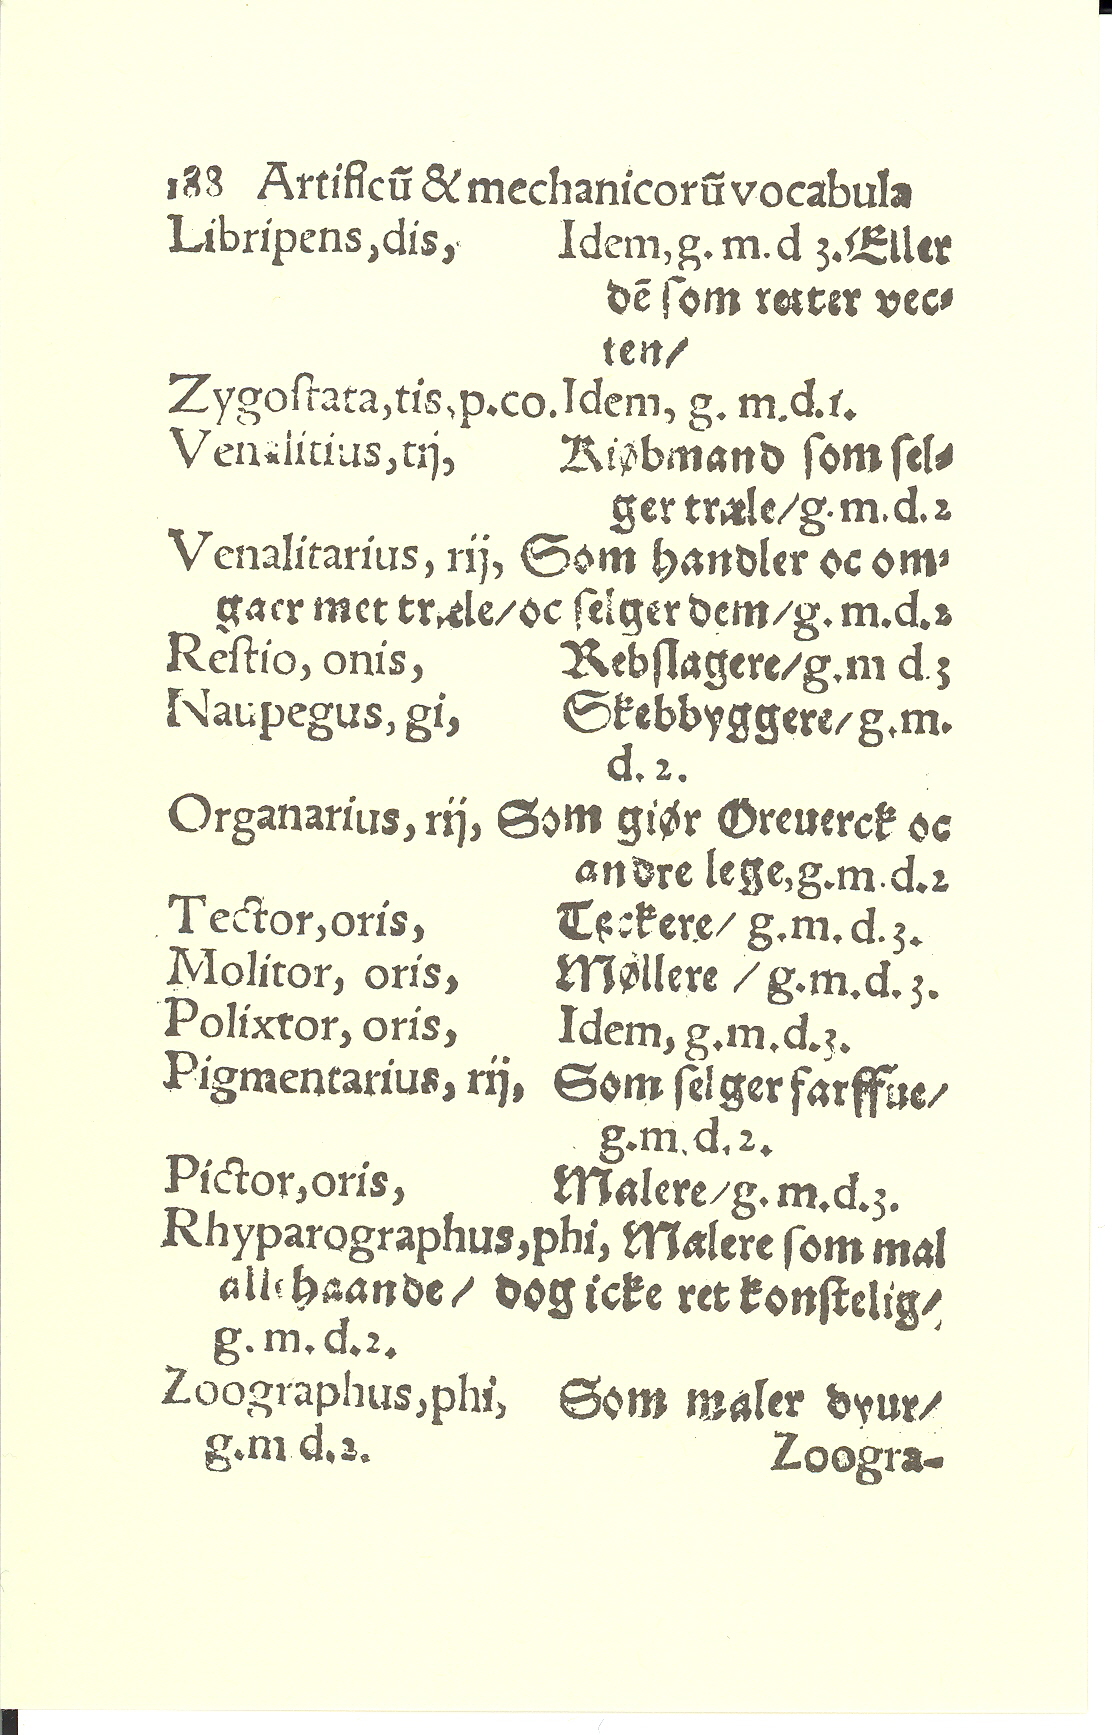 188 Artificũ & mechanicorũ vocabula
Libripens, dis, Idem, g. m. d 3. Eller
dē som rætter vec⸗
ten/
Zygostata, tis, p. co. Idem, g. m. d. 1.
Venalitius, tij, Kiøbmand som sel⸗
ger træle/ g. m. d. 2
Venalitarius, rij, Som handler oc om⸗
gaer met træle/ oc selger dem/ g. m. d. 2
Restio, onis, Rebslagere/ g. m d. 3
Naupegus, gi, Skebbyggere/ g. m.
d. 2.
Organarius, rij, Som giør Oreuerck oc
andre lege, g. m. d. 2
Tector, oris, Teckere/ g. m. d. 3.
Molitor, oris, Møllere / g. m. d. 3.
Polixtor, oris, Idem, g. m. d. 3.
Pigmentarius, rij, Som selger farffue/
g. m. d. 2.
Pictor, oris, Malere/ g. m. d. 3.
Rhyparographus, phi, Malere som mal
allehaande/ dog icke ret konstelig/
g. m. d. 2.
Zoographus, phi, Som maler dyur/
g. m d. 2. Zoogra-